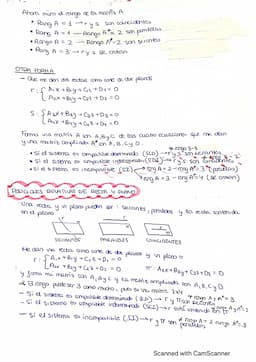 Ahora miro el rango de la matriz A
• Rang A = 1 → r y s son coincidentes
• Rang A = 1 — Rango A* = 2 son paralelas
• Rango A = 2 — Rango A* = 2 son secantes
• Rang A = 3 → r y s se cruzan
OTRA FORMA
- Que me den dos rectas como corte de dos planos
r: { Ax + By + Cz + D = 0
Ax + By + Cz + D = 0
S: { Ax + By + Cz + D = 0
Ax + By + Cz + D = 0
Formo una matriz A con A, B y C de las cuatro ecuaciones que me dan
y una matriz ampliada A* con A, B, C y D.
- Si el sistema es compatible determinado (SCD) → r y s son secantes
- Si el sistema es compatible indeterminado (SCI) → r y s son coincidentes
- Si el sistema es incompatible (SI) → rang A = 2 — rang A* = 3 (paralelas)
rang A = 3 — rang A* = 4 (se cruzan)
POSICIONES RELATIVAS DE RECTA Y PLANO
Una recta y un plano pueden ser: secantes, paralelos y la recta contenida
en el plano.
SECANTES PARALELOS COINCIDENTES
Me dan una recta como corte de dos planos y un plano
r: { Ax + By + Cz + D = 0
Ax + By + Cz + D = 0 π: Ax + By + Cz + D = 0
y formo mi matriz con A, B y C y la matriz ampliada con A, B, C, D
- Si el sistema es compatible determinado (SCD) → r y π son secantes
- Si el sistema es compatible indeterminado (SCI) → r está contenida en π
- Si el sistema es incompatible (SI) → r y π son paralelos
Scanned with CamScanner